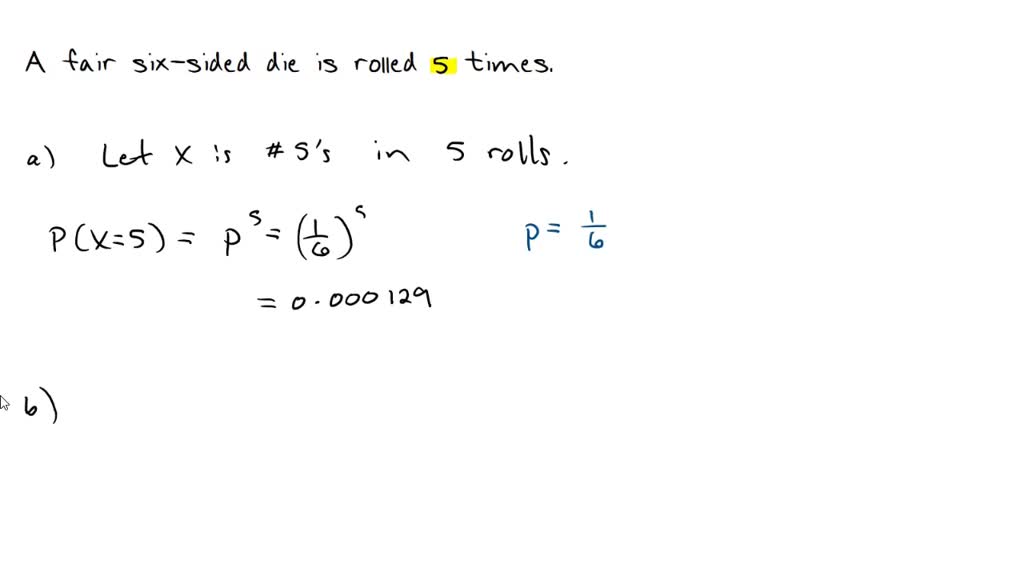 A fair six-sided die is rolled 5 times.
a) Let X is # 5's in 5 rolls.
P(X=5) = p^5 = (1/6)^5
p = 1/6
= 0.000129
b)